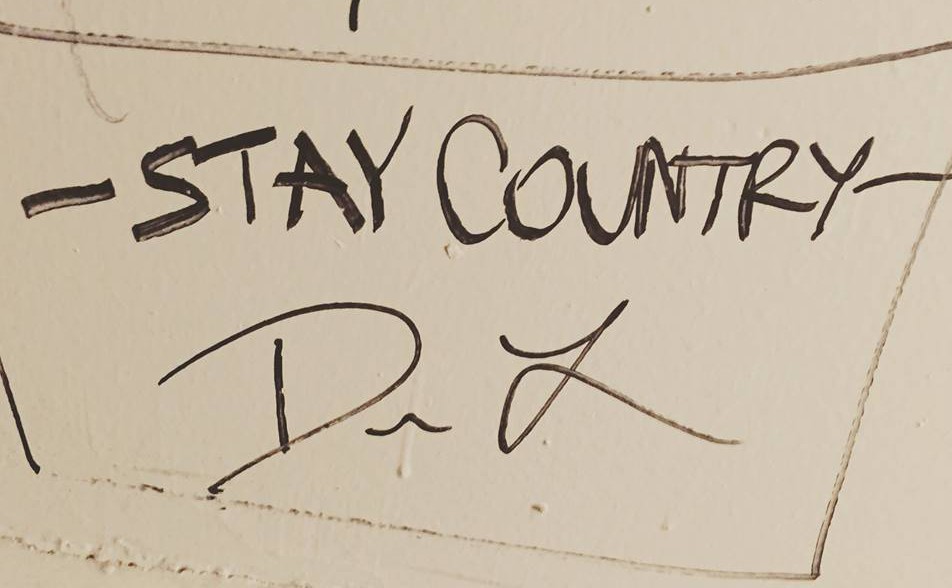 -STAY COUNTRY-